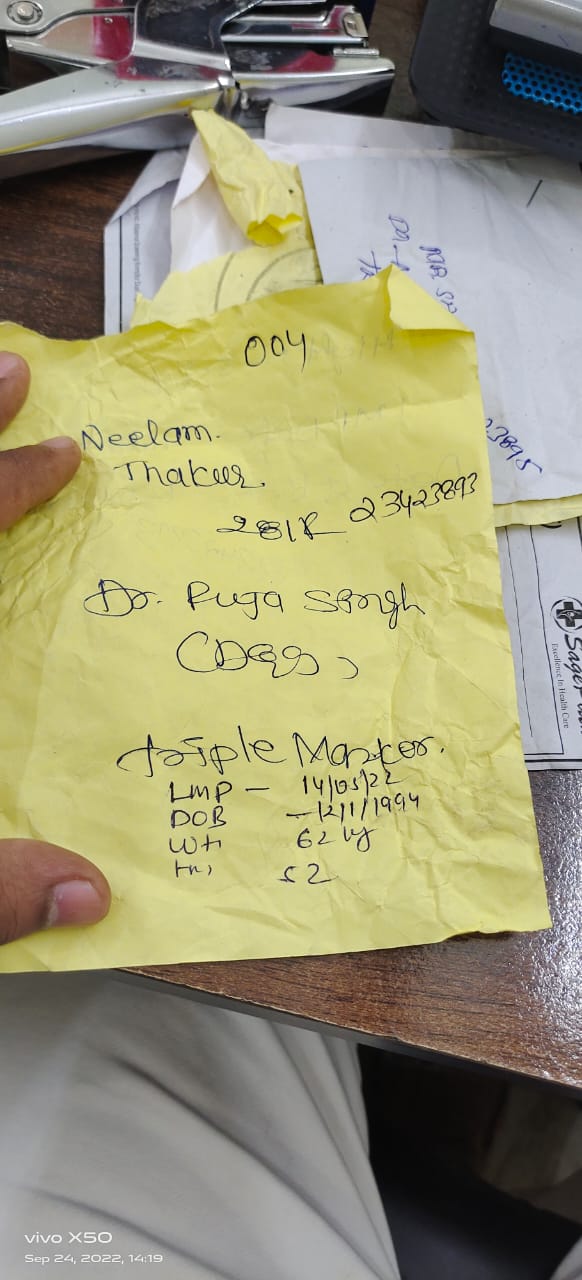 004
Neelam.
Thakur.
28/F 23423893
Dr. Puja Singh
Triple Marker.
LMP – 14/05/22
DOB – 12/1/1994
Wt 62 kg
Ht, 52
23895
Sage
Excellence In Health Care
vivo X50
Sep 24, 2022, 14:19